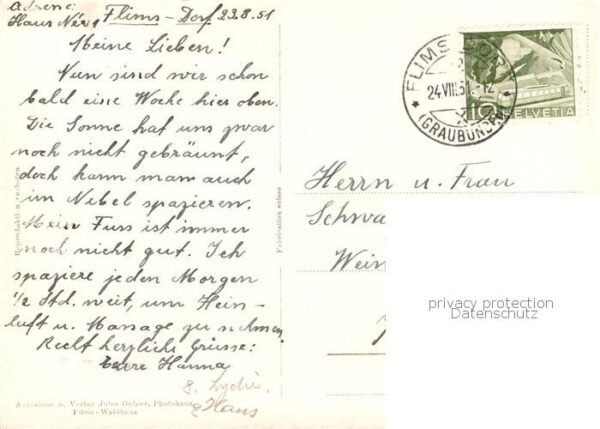 Adresse:
Haus Flims-Dorf 23.8.51
Meine Lieben!
Nun sind wir schon
bald eine Woche hier oben.
Die Sonne hat uns zwar
noch nicht gebräunt,
doch kann man auch
im Nebel spazieren.
Mein Fuss ist immer
noch nicht gut. Ich
spaziere jeden Morgen
1/2 Std. weit, um Hein-
luft u. Massage zu nehmen.
Recht herzliche Grüsse:
Eure Hanna
& Lydia
& Hans
Reproduktion verboten
Fabrication suisse
Aufnahme u. Verlag Jules Geiger, Photohaus
Flims-Waldhaus
FLIMS DORF
24.VIII.51
(GRAUBÜNDEN)
10
HELVETIA
Herrn u. Frau
Schwa
Wein
privacy protection
Datenschutz